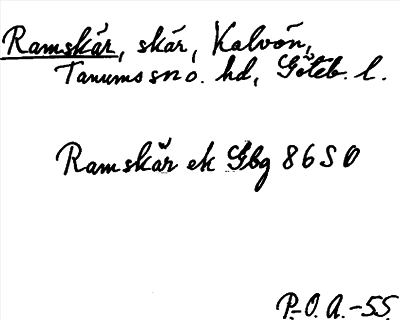 Ramskär, skär, Kalvön,
Tanums sn o. hd, Göteb. l.
Ramskär ek Gbg 86 S O
P.-O. A. -55